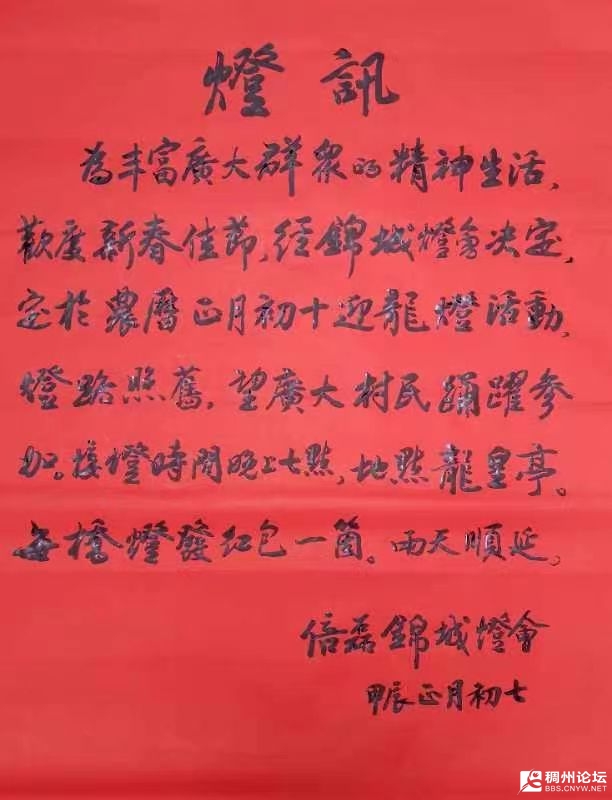 燈訊
為丰富廣大群眾的精神生活，
歡度新春佳節，經錦城燈會决定，
定於農曆正月初十迎龍燈活動，
燈路照舊，望廣大村民踊躍参
加。接燈時間晚上七點，地點龍皇亭。
每橋燈發红包一箇。雨天順延。
倍磊錦城燈會
甲辰正月初七
稠州论坛
BBS.CNYW.NET